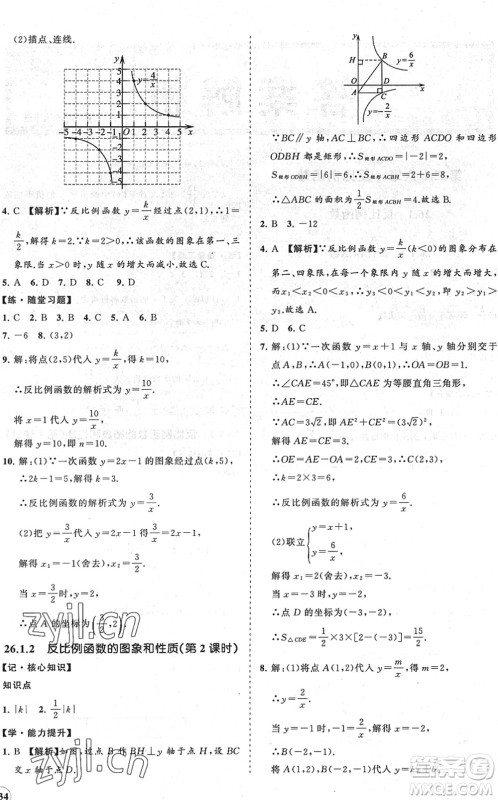 (2)描点、连线.
y
5
4
3
2
1
y=4/x
-5 -4 -3 -2 -1 O 1 2 3 4 5 x
-1
-2
-3
-4
-5
4. C 【解析】∵反比例函数 y=k/x 经过点(2,1),∴1=
k/2, 解得 k=2>0,∴反比例函数的图象在第一、三
象限,当 x>0 时,y 随 x 的增大而减小.故选 C.
5. D 6. C 7. D 8. C 9. D
【练·随堂习题】
1. C 2. B 3. C 4. A 5. B 6. C
7. -6 8. (3,2)
9. 解:将点(2,5)代入 y=k/x 得 k=10.
∴反比例函数的解析式为 y=10/x.
将 x=1 代入 y=10/x 得 y=10.
10. 解:(1)∵一次函数 y=2x-1 的图象经过点(k,5),
∴2k-1=5.∴k=3.
∴反比例函数的解析式为 y=3/x.
(2)把 y=3/x 代入 y=2x-1 得 3/x=2x-1.
解得 x=-1(舍去)或 x=3/2.
当 x=3/2 时,y=2.
∴点 A 的坐标为(3/2,2).
26.1.2 反比例函数的图象和性质(第 2 课时)
【记·核心知识】
知识点
1. |k| 2. 1/2|k|
【学·能力提升】
1. B 【解析】如图,过点 A 作 AH⊥y 轴于点 H,设 BC
交 x 轴于点 D.
34
y
y=6/x
H B
O D x
A C
∵BC∥y 轴,AC⊥BC,∴四边形 ACDO 和四边形
ODBH 都是矩形.∴S矩形ACDO=|-2|=2,
S矩形ODBH=|6|=6.∴S矩形ACBH=2+6=8.
∴△ABC 的面积=1/2S矩形ACBH=4.故选 B.
2. B 3. -12
4. A 【解析】∵反比例函数 y=k/x(k<0)的图象分布在
第二、四象限,在每一象限 y 随 x 的增大而增大,
而 x₁<x₂<0<x₃,∴y₃<y₁<y₂.故选 A.
5. D 6. C
7. 解:(1)∵一次函数 y=x+1 与 x 轴、y 轴分别交于
点 A,B,∴点 A(-1,0),点 B(0,1).∴OA=OB=1.
∴∠CAE=45°,即△CAE 为等腰直角三角形.
∴AE=CE.
∵AC=3√2,即 AE²+CE²=(3√2)².
解得 AE=CE=3.
∴OE=AE-OA=2.∴点 C 的坐标为(2,3).
∴k=2×3=6.
∴反比例函数的解析式为 y=6/x.
(2)联立{y=x+1, y=6/x.
解得 x=2(舍去)或 x=-3.
当 x=-3 时,y=-2.
∴点 D 的坐标为(-3,-2).
∴S△CDE=1/2×3×[3-(-2)]=15/2.
8. 解:(1)将点 A(-1,2)代入 y=m/x 得 2=m/-1.
∴m=-2.∴y=-2/x.
将点 B(a,-1)代入 y=-2/x 得 a=2.
将点 A(-1,2),点 B(2,-1)代入 y=kx+b 得
zyjl.cn